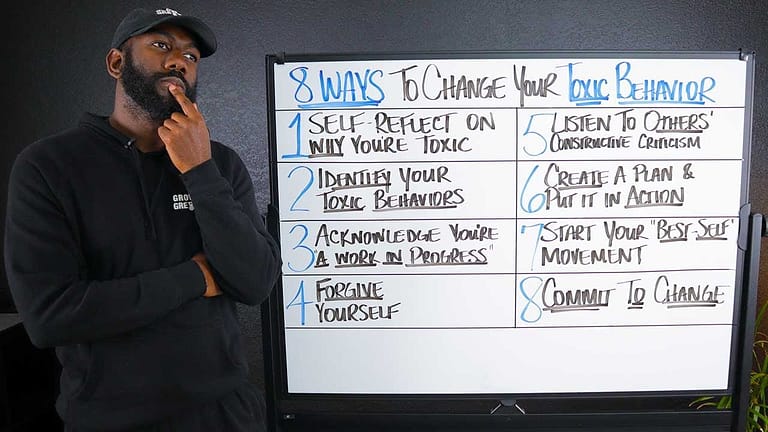 8 WAYS TO CHANGE YOUR TOXIC BEHAVIOR
1 SELF-REFLECT ON
WHY YOU'RE TOXIC
2 IDENTIFY YOUR
TOXIC BEHAVIORS
3 ACKNOWLEDGE YOU'RE
"A WORK IN PROGRESS"
4 FORGIVE
YOURSELF
5 LISTEN TO OTHERS'
CONSTRUCTIVE CRITICISM
6 CREATE A PLAN &
PUT IT IN ACTION
7 START YOUR "BEST-SELF"
MOVEMENT
8 COMMIT TO CHANGE